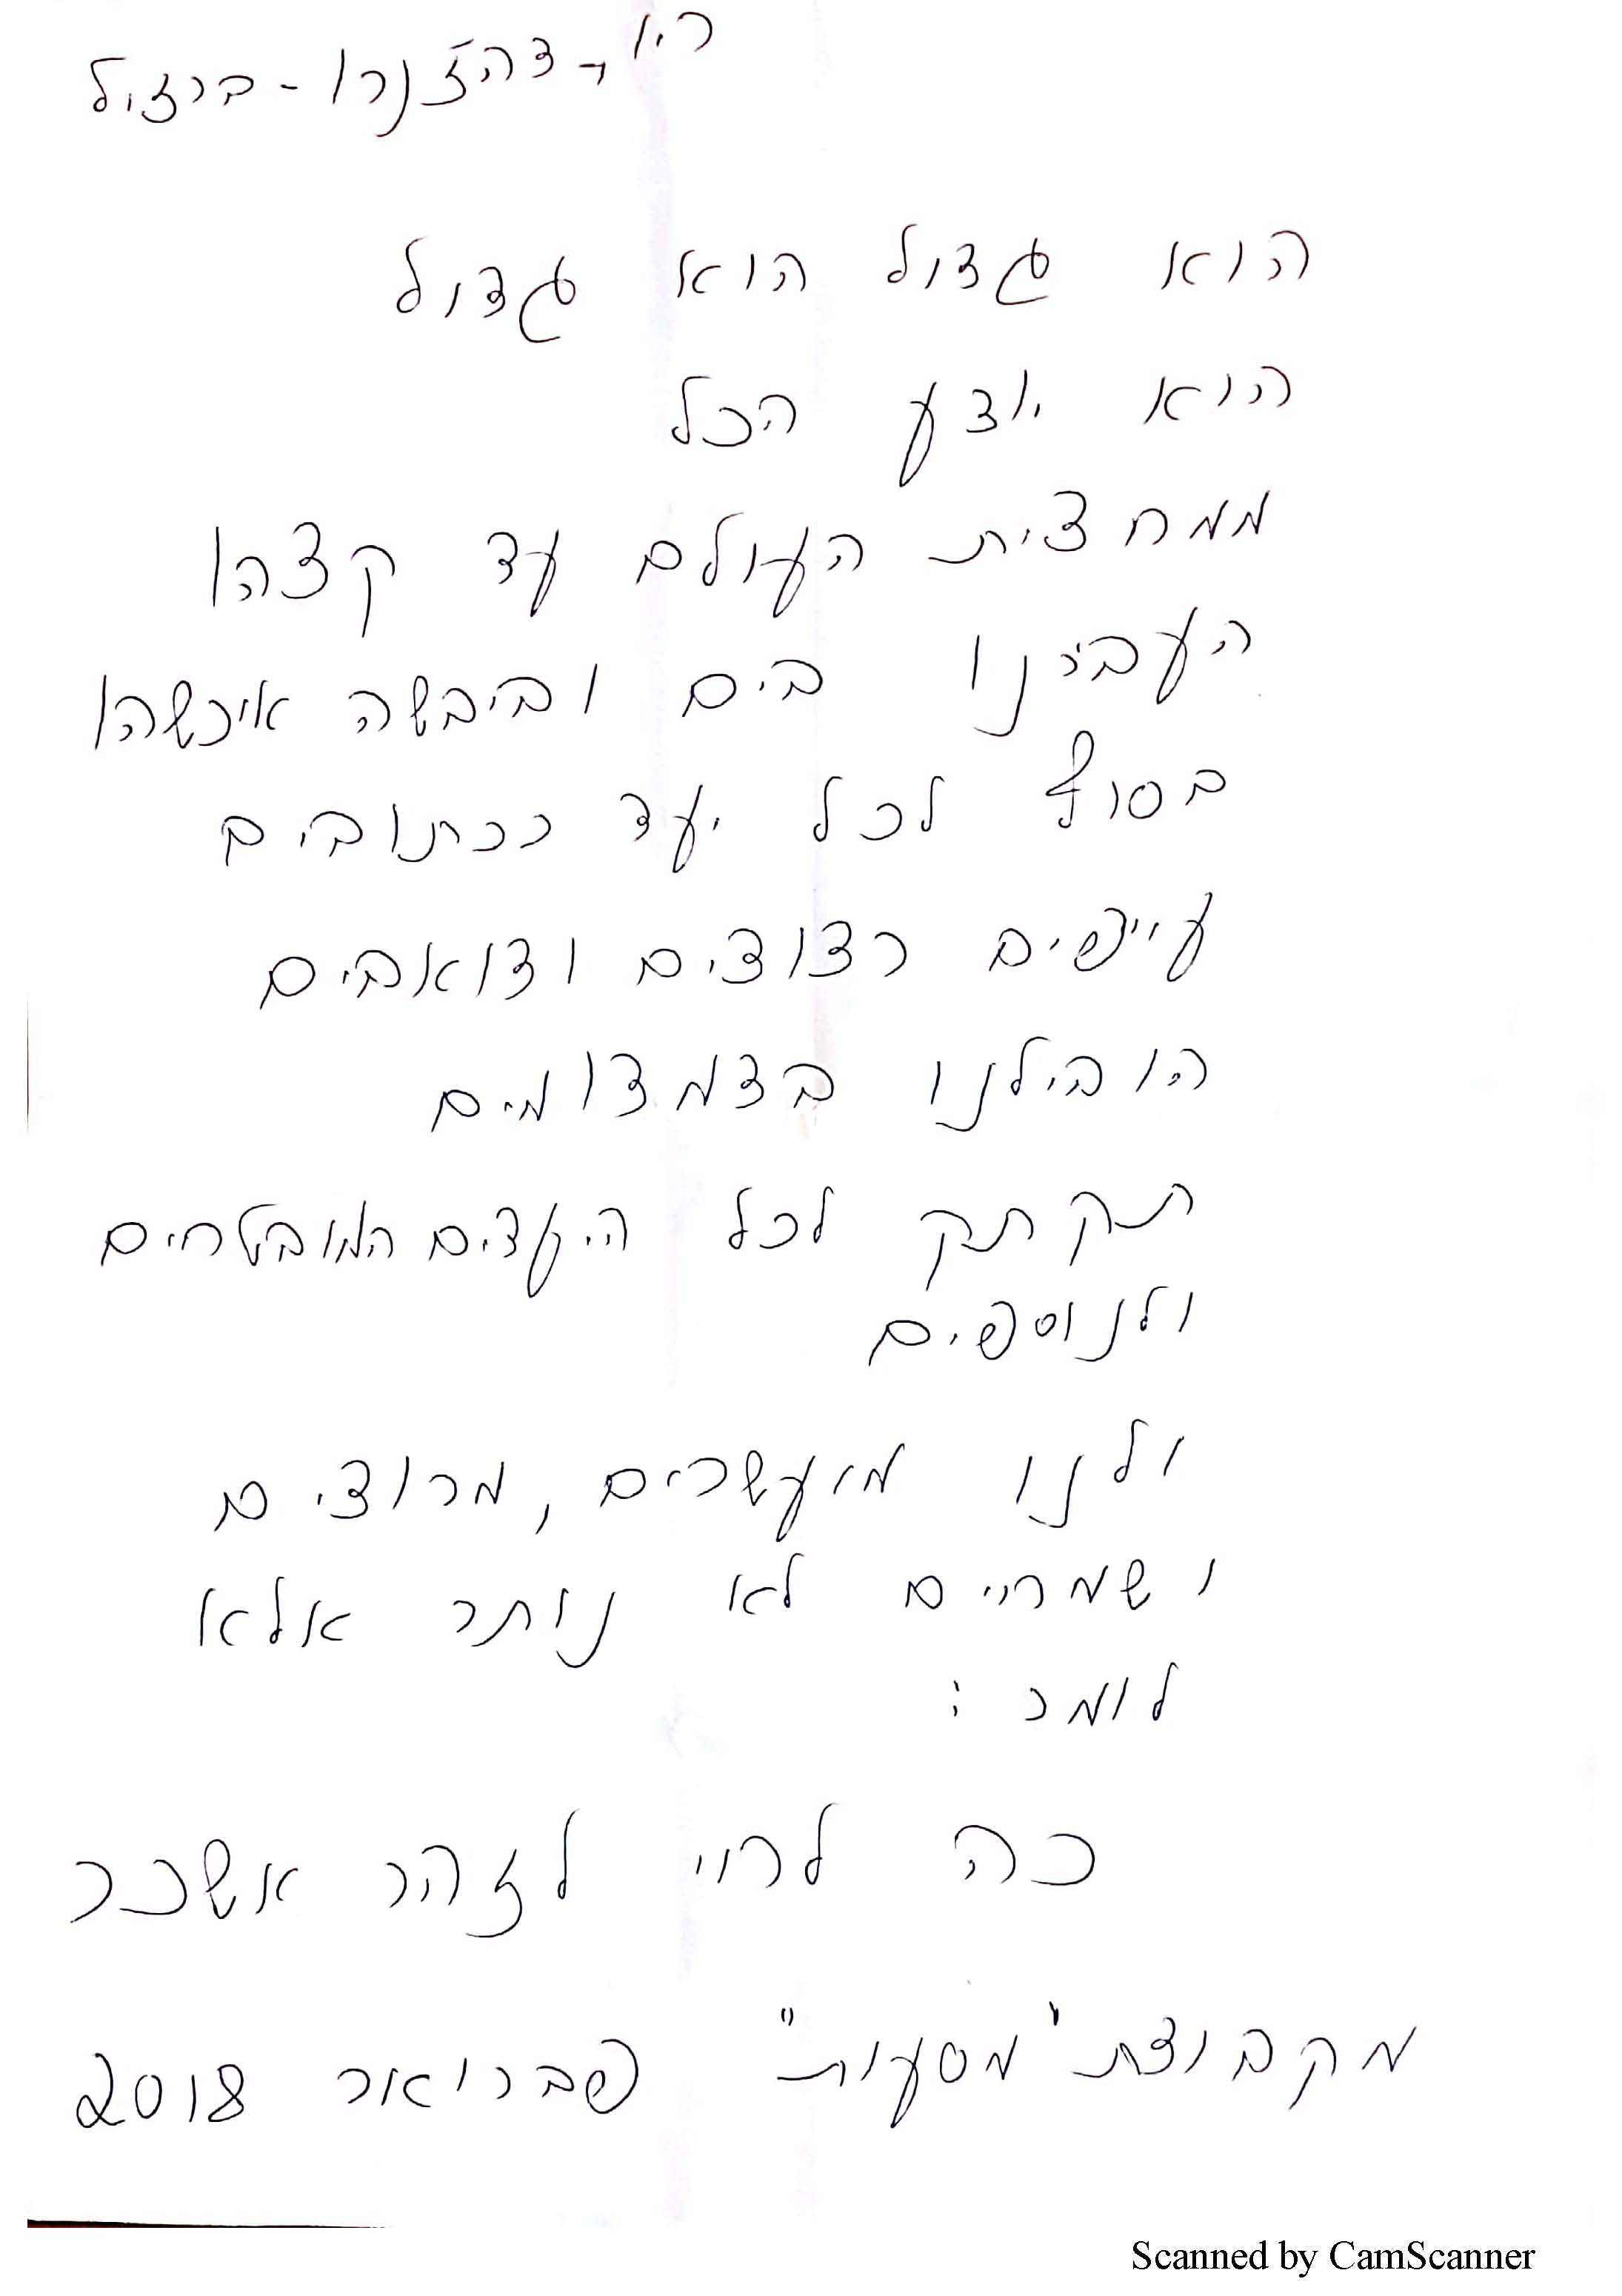 ריו - דה ז'נרו - ברזיל
הוא גדול הוא גדול
הוא יודע הכל
ממחצית העולם עד קצהו
העבירנו בים וביבשה איכשהו
בסוף לכל יעד ככתובים
עייפים רצוצים ודואבים
הובילנו בצמדומים
תק תק לכל היעדים המובטחים
ולנוספים
ולנו מיועשרים, מרוצים
ושמריים לא נותר אלא
לומר:
כה לחיי לזהר אשכר
מקבוצת "מסעות" פברואר 2018
Scanned by CamScanner